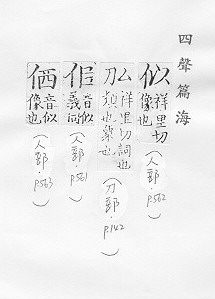 四聲篇海
似 祥里切像也
(人部.P.562)
祥里切詞也類也象也
(刀部.P.142)
音似義同
(人部.P.561)
音似像也
(人部.P.563)